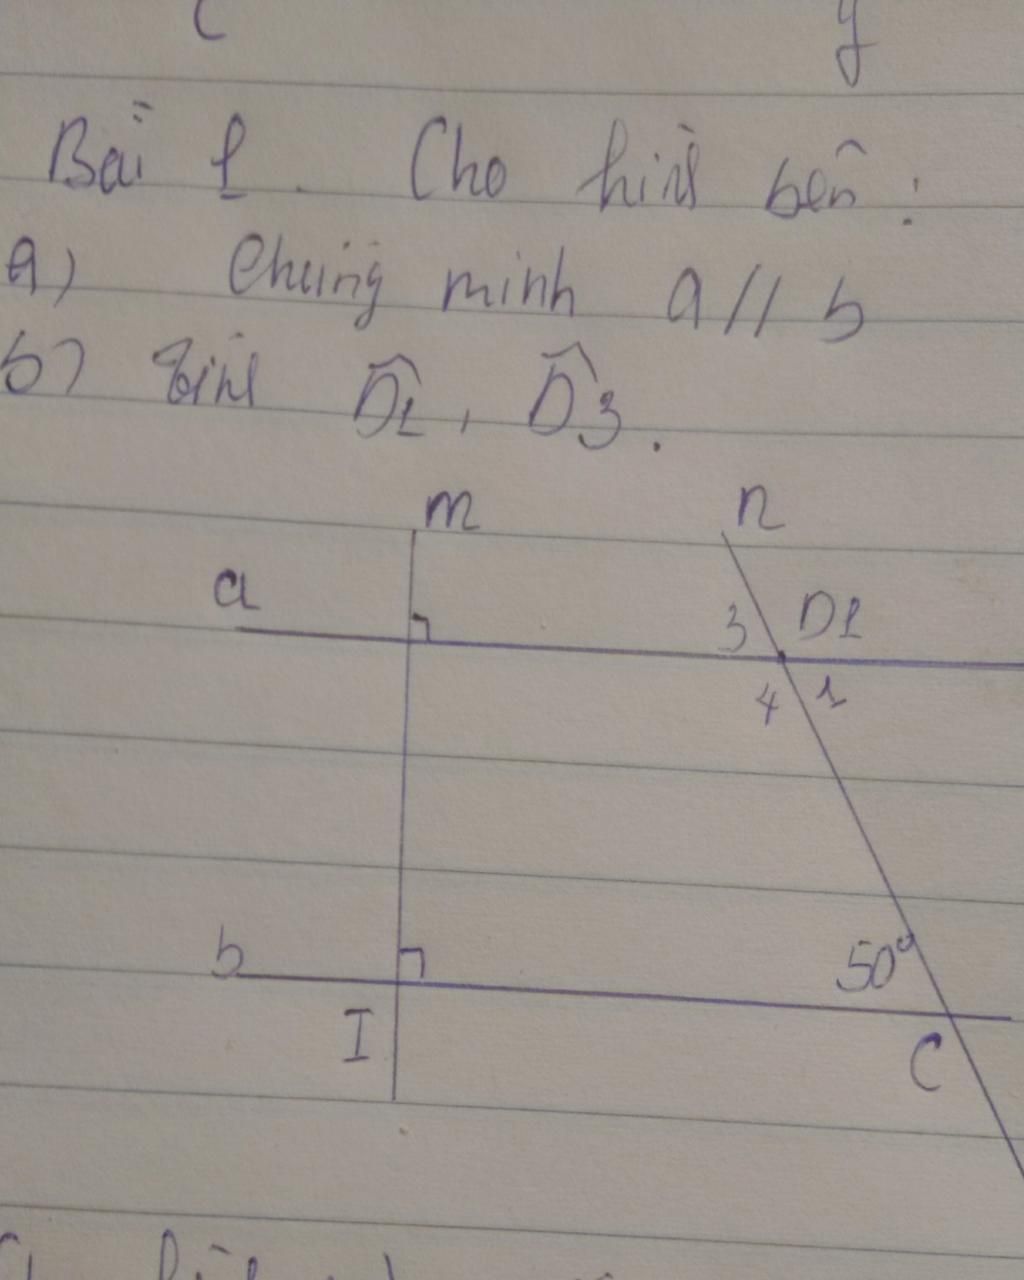 y
Bài 1. Cho hình bên:
a) Chứng minh a // b
b) Tính D̂1, D̂3.
m n
a 3 D1
4 1
b 50°
I C